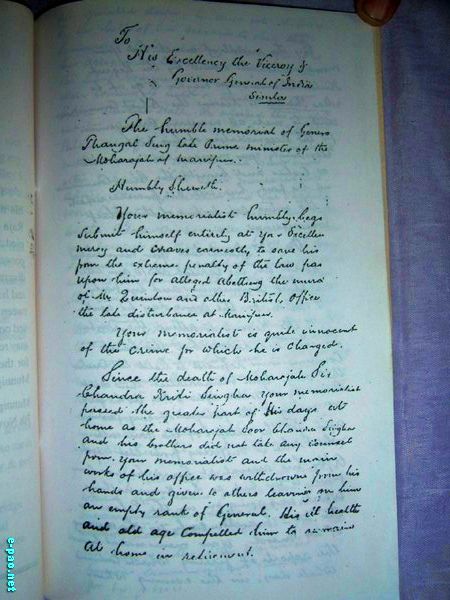 To
His Excellency the Viceroy &
Governor General of India
Simla
The humble memorial of Genera
Thangal Sing late Prime minister of the
Moharajah of Manipur.
Humbly Sheweth.
Your memorialist humbly begs
Submit himself entirely at Your Excellen
mercy and craves earnestly to save his
from the extreme penalty of the law pas
upon him for alleged abetting the murd
of Mr Quinton and other British Office
the late disturbance at Manipur.
Your memorialist is quite innocent
of the crime for which he is charged.
Since the death of Moharajah Sir
Chandra Kriti Singha your memorialist
passed the greater part of His days at
home as the Moharajah Soor Chandra Singha
and his brothers did not take any counsel
from your memorialist and the main
works of his office was withdrawn from his
hands and given to others leaving on him
an empty rank of General. His ill health
and old age compelled him to remain
at home in retirement.
e-pao.net